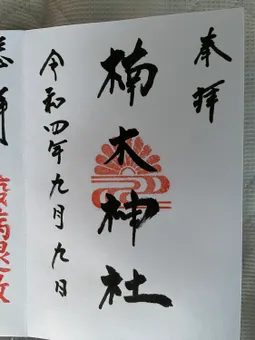 奉拝
楠木神社
令和四年九月九日
奉拝